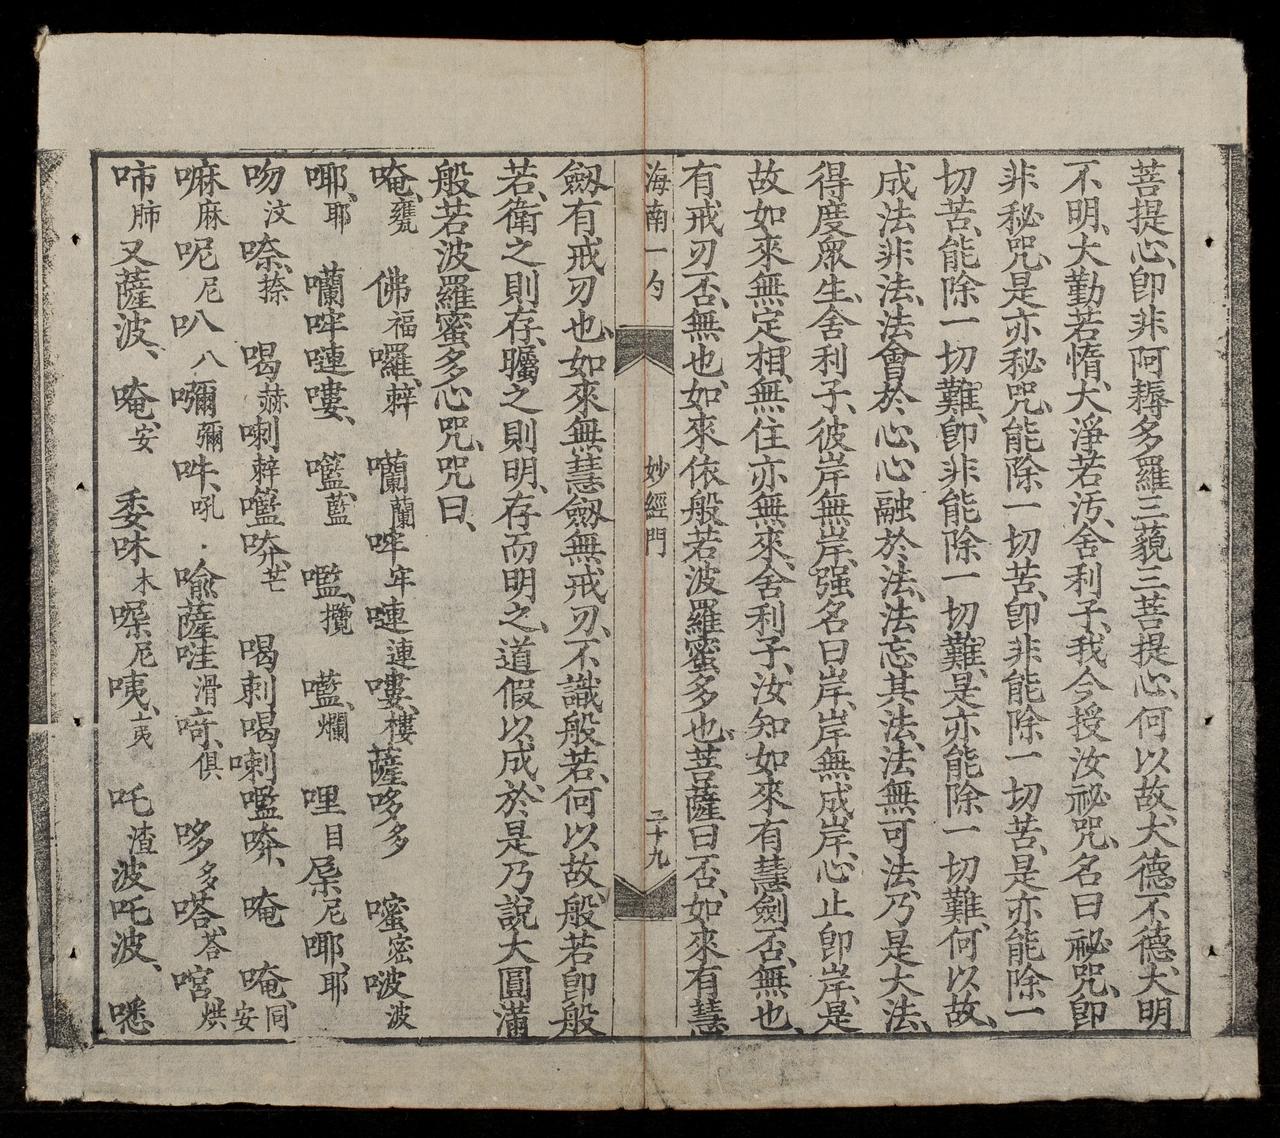 菩提心、卽非阿耨多羅三藐三菩提心、何以故、大德不德、大明
不明、大勤若惰、大淨若汚、舍利子、我今授汝祕咒、名曰祕咒、卽
非秘咒、是亦秘咒、能除一切苦、卽非能除一切苦、是亦能除一
切苦、能除一切難、卽非能除一切難、是亦能除一切難、何以故、
成法非法、法會於心、心融於法、法忘其法、法無可法、乃是大法、
得度眾生、舍利子、彼岸無岸、强名曰岸、岸無成岸、心止卽岸、是
故如來無定相、無住亦無來、舍利子、汝知如來有慧劍否、無也、
有戒刃否、無也、如來依般若波羅蜜多也、菩薩曰否、如來有慧
海南一勺
妙經門
二十九
劔有戒刃也、如來無慧劔無戒刃、不識般若、何以故、般若卽般
若、衛之則存、矚之則明、存而明之、道假以成、於是乃說大圓滿
般若波羅蜜多心咒、咒曰、
唵、甕 佛福囉、辢 囒蘭哰牢嗹連嘍、樓薩哆多 嘧密啵波
耶、耶 囒哰嗹嘍、 㘕藍 㘕、攬 㘕、爛 哩目㞕尼耶、耶
吻汶㗇、捺 喝赫喇辢㘕㗍、芒 喝剌喝喇㘕㗍、唵 唵、同安
嘛麻呢尼叭八嚩彌吽、吼 喻薩哇滑㗁、俱 哆多嗒、荅㖓烘
㕹肺又薩波、 唵、安 委㕲木㘿尼咦、夷 吒渣波吒波、 㘁